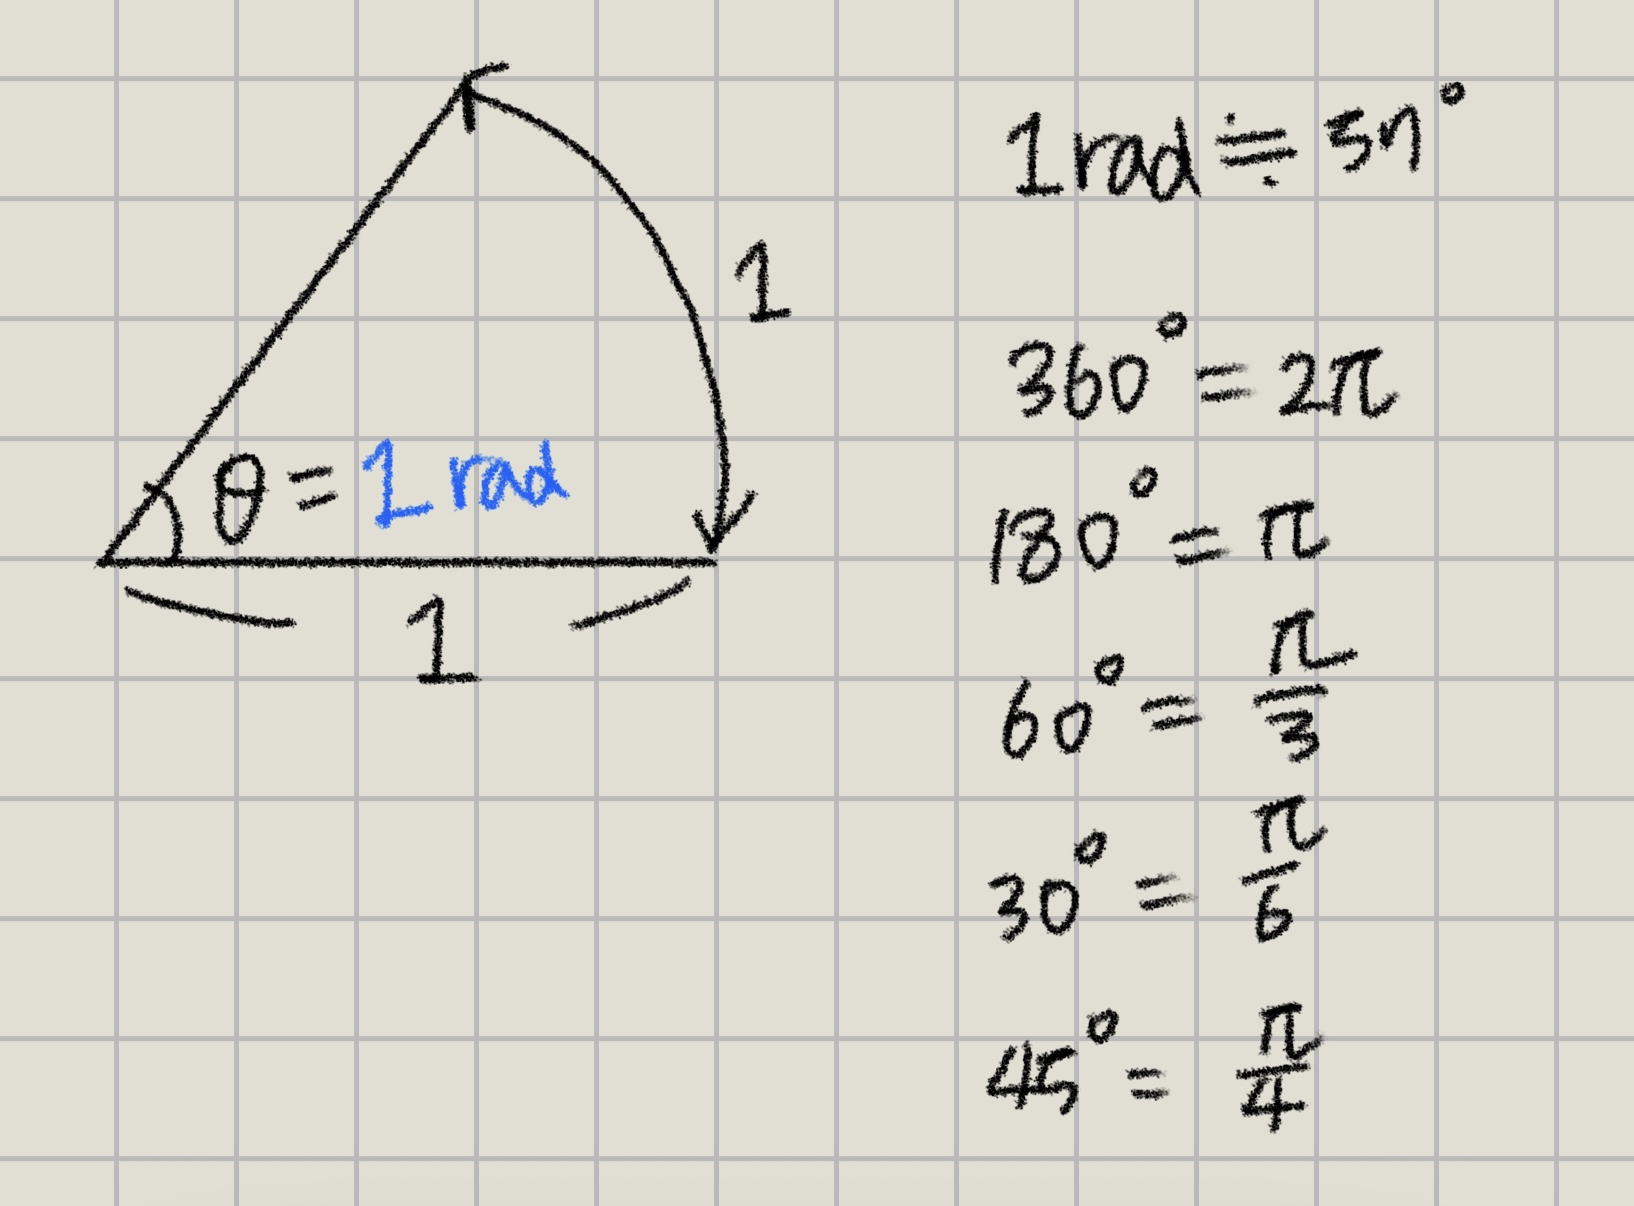 1
θ = 1 rad
1
1 rad ≒ 57°
360° = 2π
180° = π
60° = π/3
30° = π/6
45° = π/4